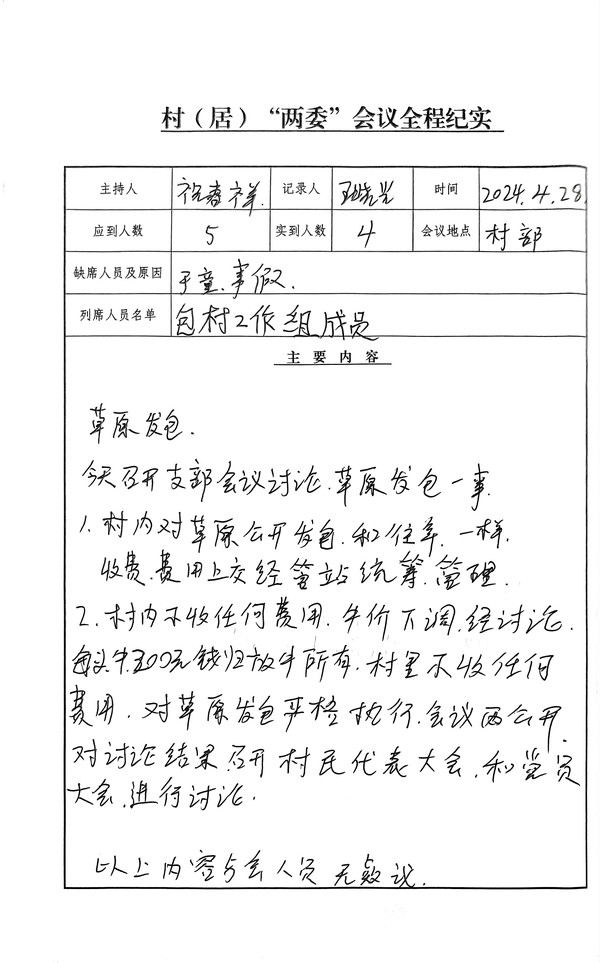 村（居）“两委”会议全程纪实
主持人 祝春祥. 记录人 时间 2024.4.28.
应到人数 5 实到人数 4 会议地点 村部
缺席人员及原因 于童.事假.
列席人员名单 包村工作组成员
主要内容
草原发包.
今天召开支部会议讨论.草原发包一事.
1.村内对草原公开发包.和往年.一样.
收费.费用上交经管站统筹.管理.
2.村内不收任何费用.牛价下调.经讨论.
每头牛500元钱归放牛所有.村里不收任何
费用.对草原发包严格执行.会议两公开.
对讨论结果召开村民代表大会.和党员
大会.进行讨论.
以上内容与会人员无异议.